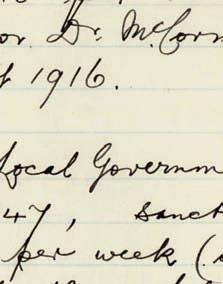 or Dr. McCorm
f 1916.
Local Governm
47, sanct
per week (